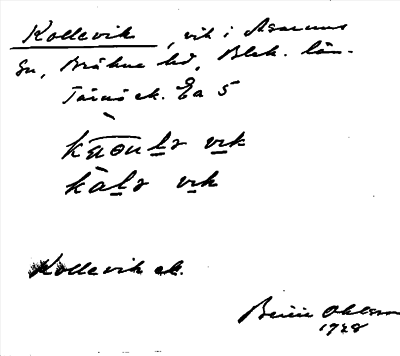 Kollevik, vik i Asarums
sn, Bräkne hd, Blek. län.
Tärnö ek. Ea 5
vik
kàl̲ə vi̲k
Kollevik ek.
Ohlsson
1928